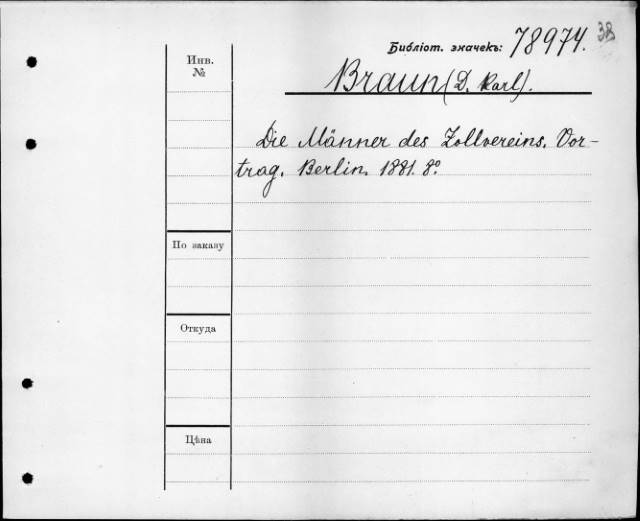 Библіот. значекъ: 78974. 38
Инв.
№
Braun (D. Karl).
Die Männer des Zollvereins. Vor-
trag. Berlin. 1881. 8º
По заказу
Откуда
Цѣна